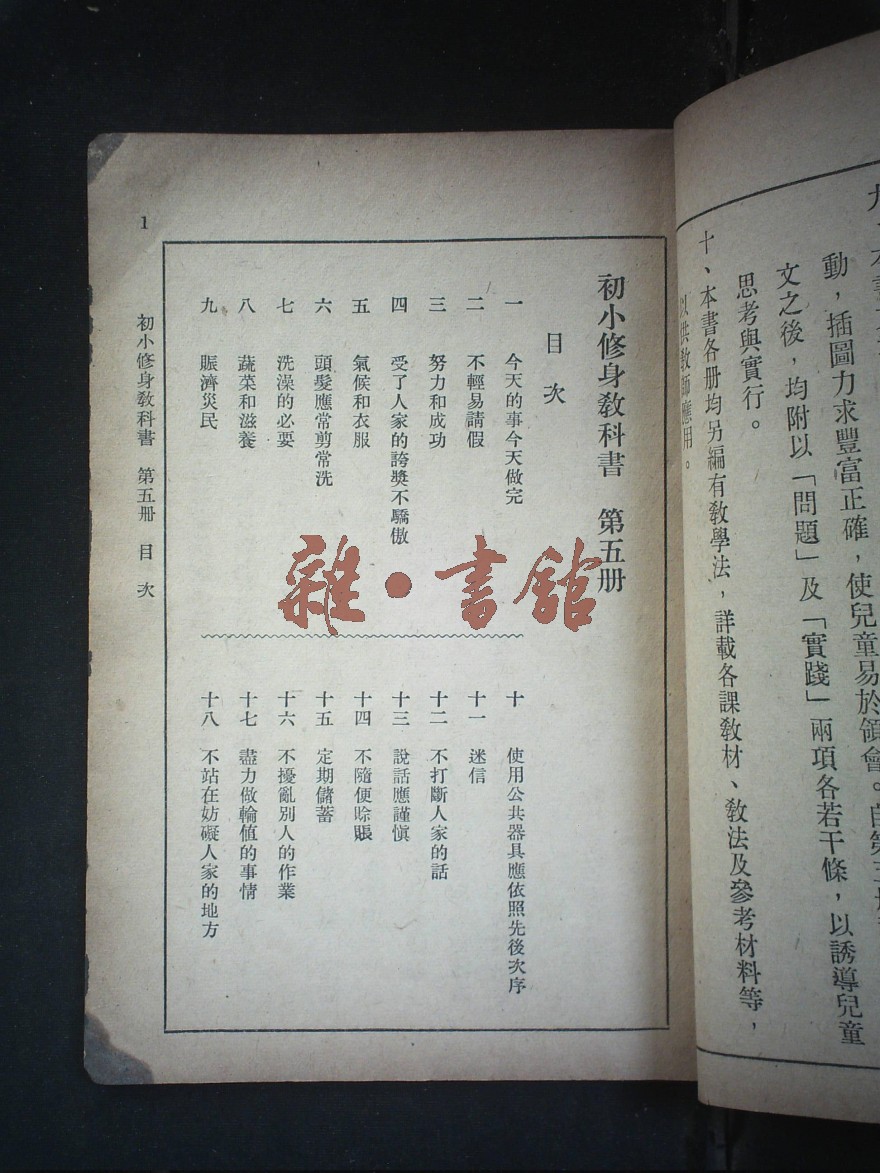 動，插圖力求豐富正確，使兒童易於領會。自第三册
文之後，均附以「問題」及「實踐」兩項各若干條，以誘導兒童
思考與實行。
十、本書各册均另編有敎學法，詳載各課敎材、敎法及參考材料等，
以供敎師應用。
初小修身敎科書　第五册
目次
一　今天的事今天做完
二　不輕易請假
三　努力和成功
四　受了人家的誇獎不驕傲
五　氣候和衣服
六　頭髮應常剪常洗
七　洗澡的必要
八　蔬菜和滋養
九　賑濟災民
十　使用公共器具應依照先後次序
十一　迷信
十二　不打斷人家的話
十三　說話應謹愼
十四　不隨便賒賬
十五　定期儲蓄
十六　不擾亂別人的作業
十七　盡力做輪値的事情
十八　不站在妨礙人家的地方
初小修身敎科書　第五册　目次
1
雜·書館